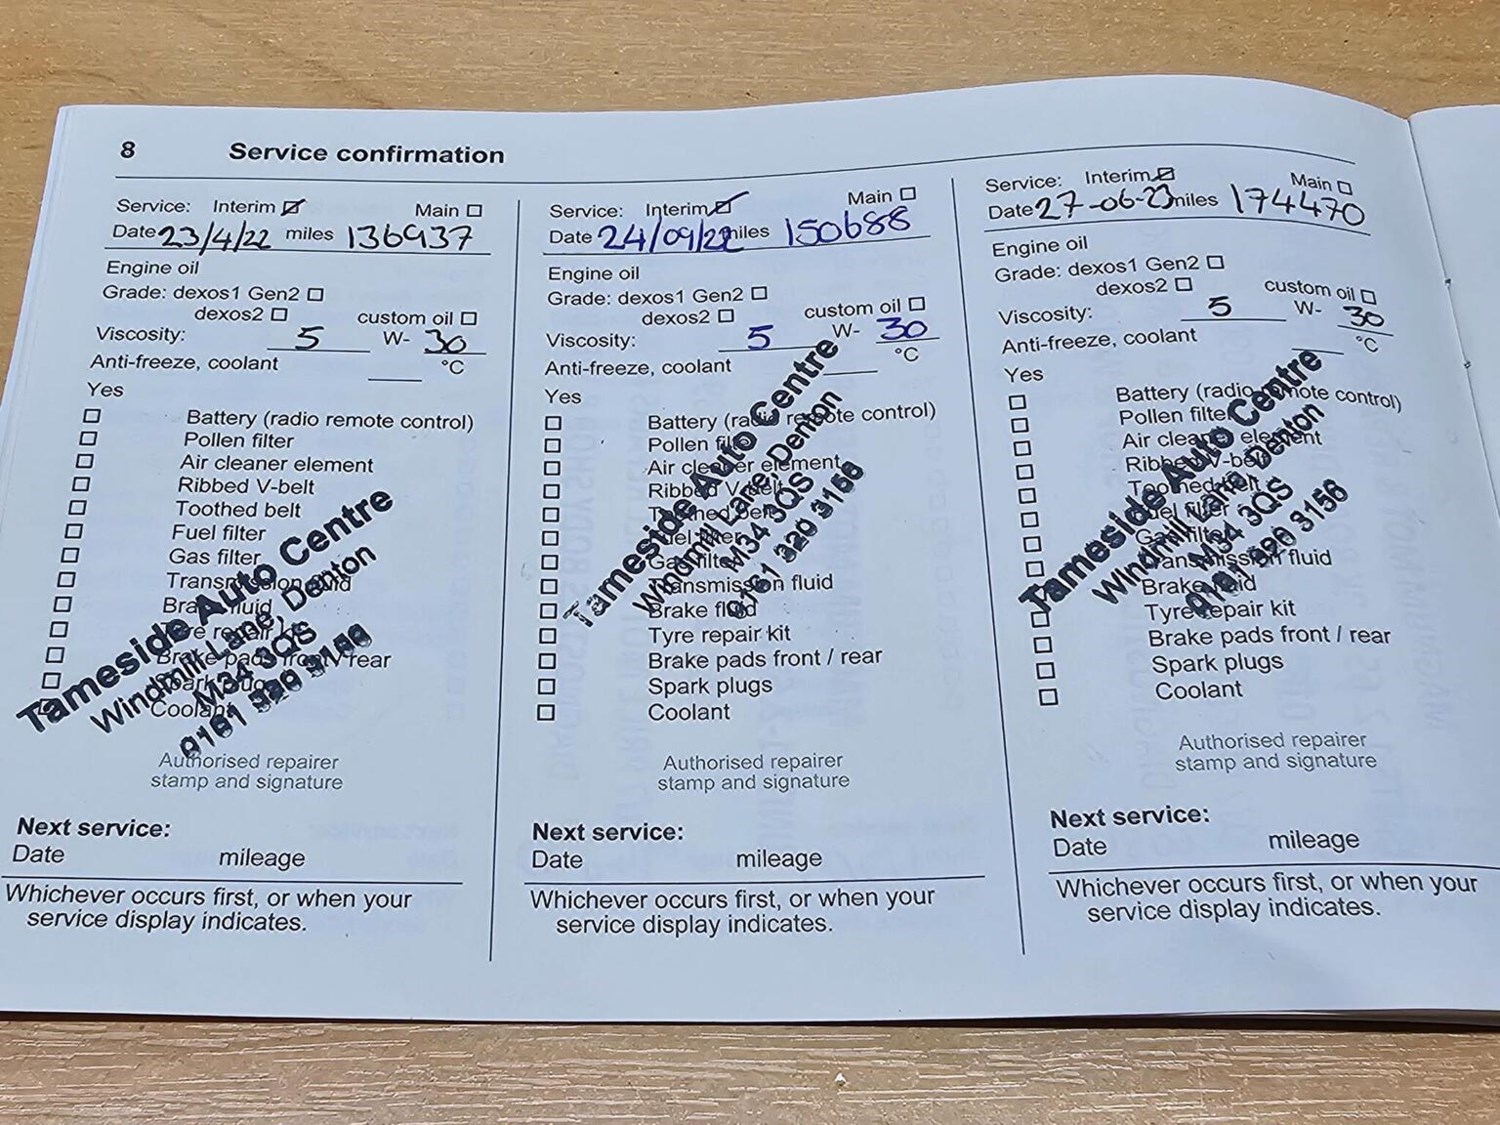 8 Service confirmation
Service: Interim Main
Date 23/4/22 miles 136937
Engine oil
Grade: dexos1 Gen2
dexos2 custom oil
Viscosity: 5 W- 30
Anti-freeze, coolant °C
Yes
Battery (radio remote control)
Pollen filter
Air cleaner element
Ribbed V-belt
Toothed belt
Fuel filter
Gas filter
Transmission fluid
Brake fluid
Tyre repair kit
Brake pads front / rear
Spark plugs
Coolant
Tameside Auto Centre
Windmill Lane, Denton
M34 3QS
0161 320 3156
Authorised repairer
stamp and signature
Next service:
Date mileage
Whichever occurs first, or when your
service display indicates.
Service: Interim Main
Date 24/09/22 miles 150688
Engine oil
Grade: dexos1 Gen2
dexos2 custom oil
Viscosity: 5 W- 30
Anti-freeze, coolant °C
Yes
Battery (radio remote control)
Pollen filter
Air cleaner element
Ribbed V-belt
Toothed belt
Fuel filter
Gas filter
Transmission fluid
Brake fluid
Tyre repair kit
Brake pads front / rear
Spark plugs
Coolant
Tameside Auto Centre
Windmill Lane, Denton
M34 3QS
0161 320 3156
Authorised repairer
stamp and signature
Next service:
Date mileage
Whichever occurs first, or when your
service display indicates.
Service: Interim Main
Date 27-06-23 miles 174470
Engine oil
Grade: dexos1 Gen2
dexos2 custom oil
Viscosity: 5 W- 30
Anti-freeze, coolant °C
Yes
Battery (radio remote control)
Pollen filter
Air cleaner element
Ribbed V-belt
Toothed belt
Fuel filter
Gas filter
Transmission fluid
Brake fluid
Tyre repair kit
Brake pads front / rear
Spark plugs
Coolant
Tameside Auto Centre
Windmill Lane, Denton
M34 3QS
0161 320 3156
Authorised repairer
stamp and signature
Next service:
Date mileage
Whichever occurs first, or when your
service display indicates.